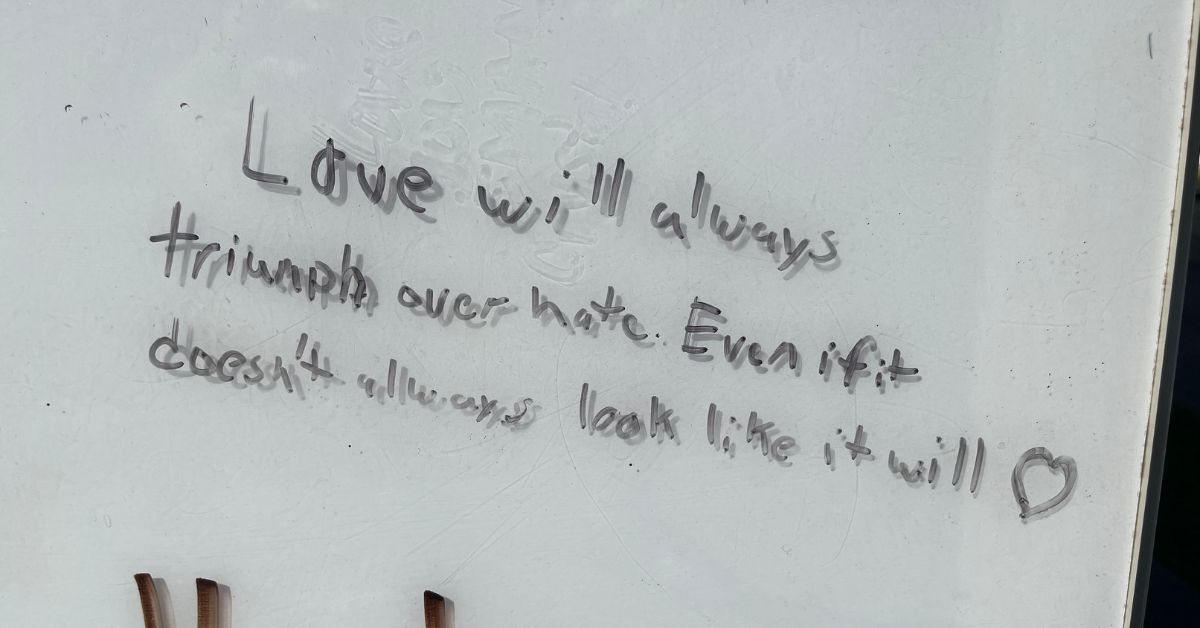 Love will always
triumph over hate. Even if it
doesn't allways look like it will ♡